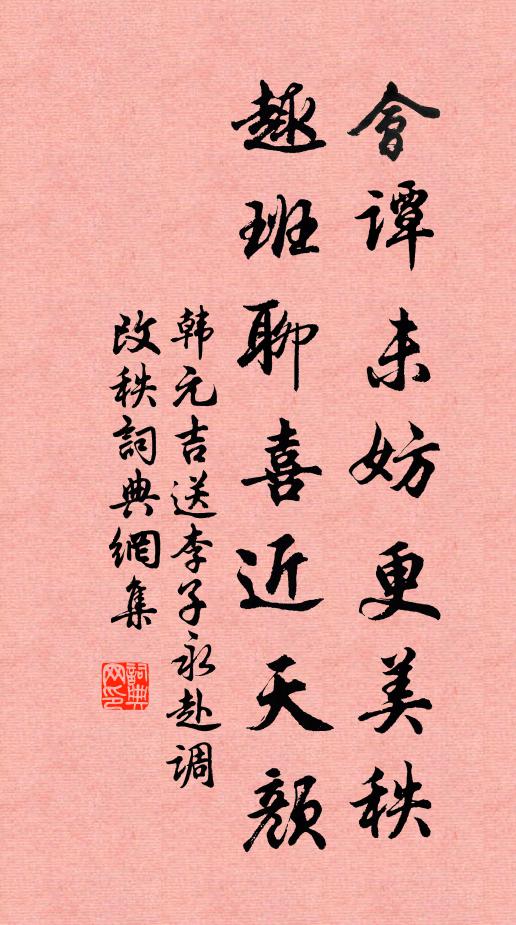 會谭未妨更美秩
趣班聊喜近天颜
韩元吉送李子永赴调
改秩詞典網集
詞典网印